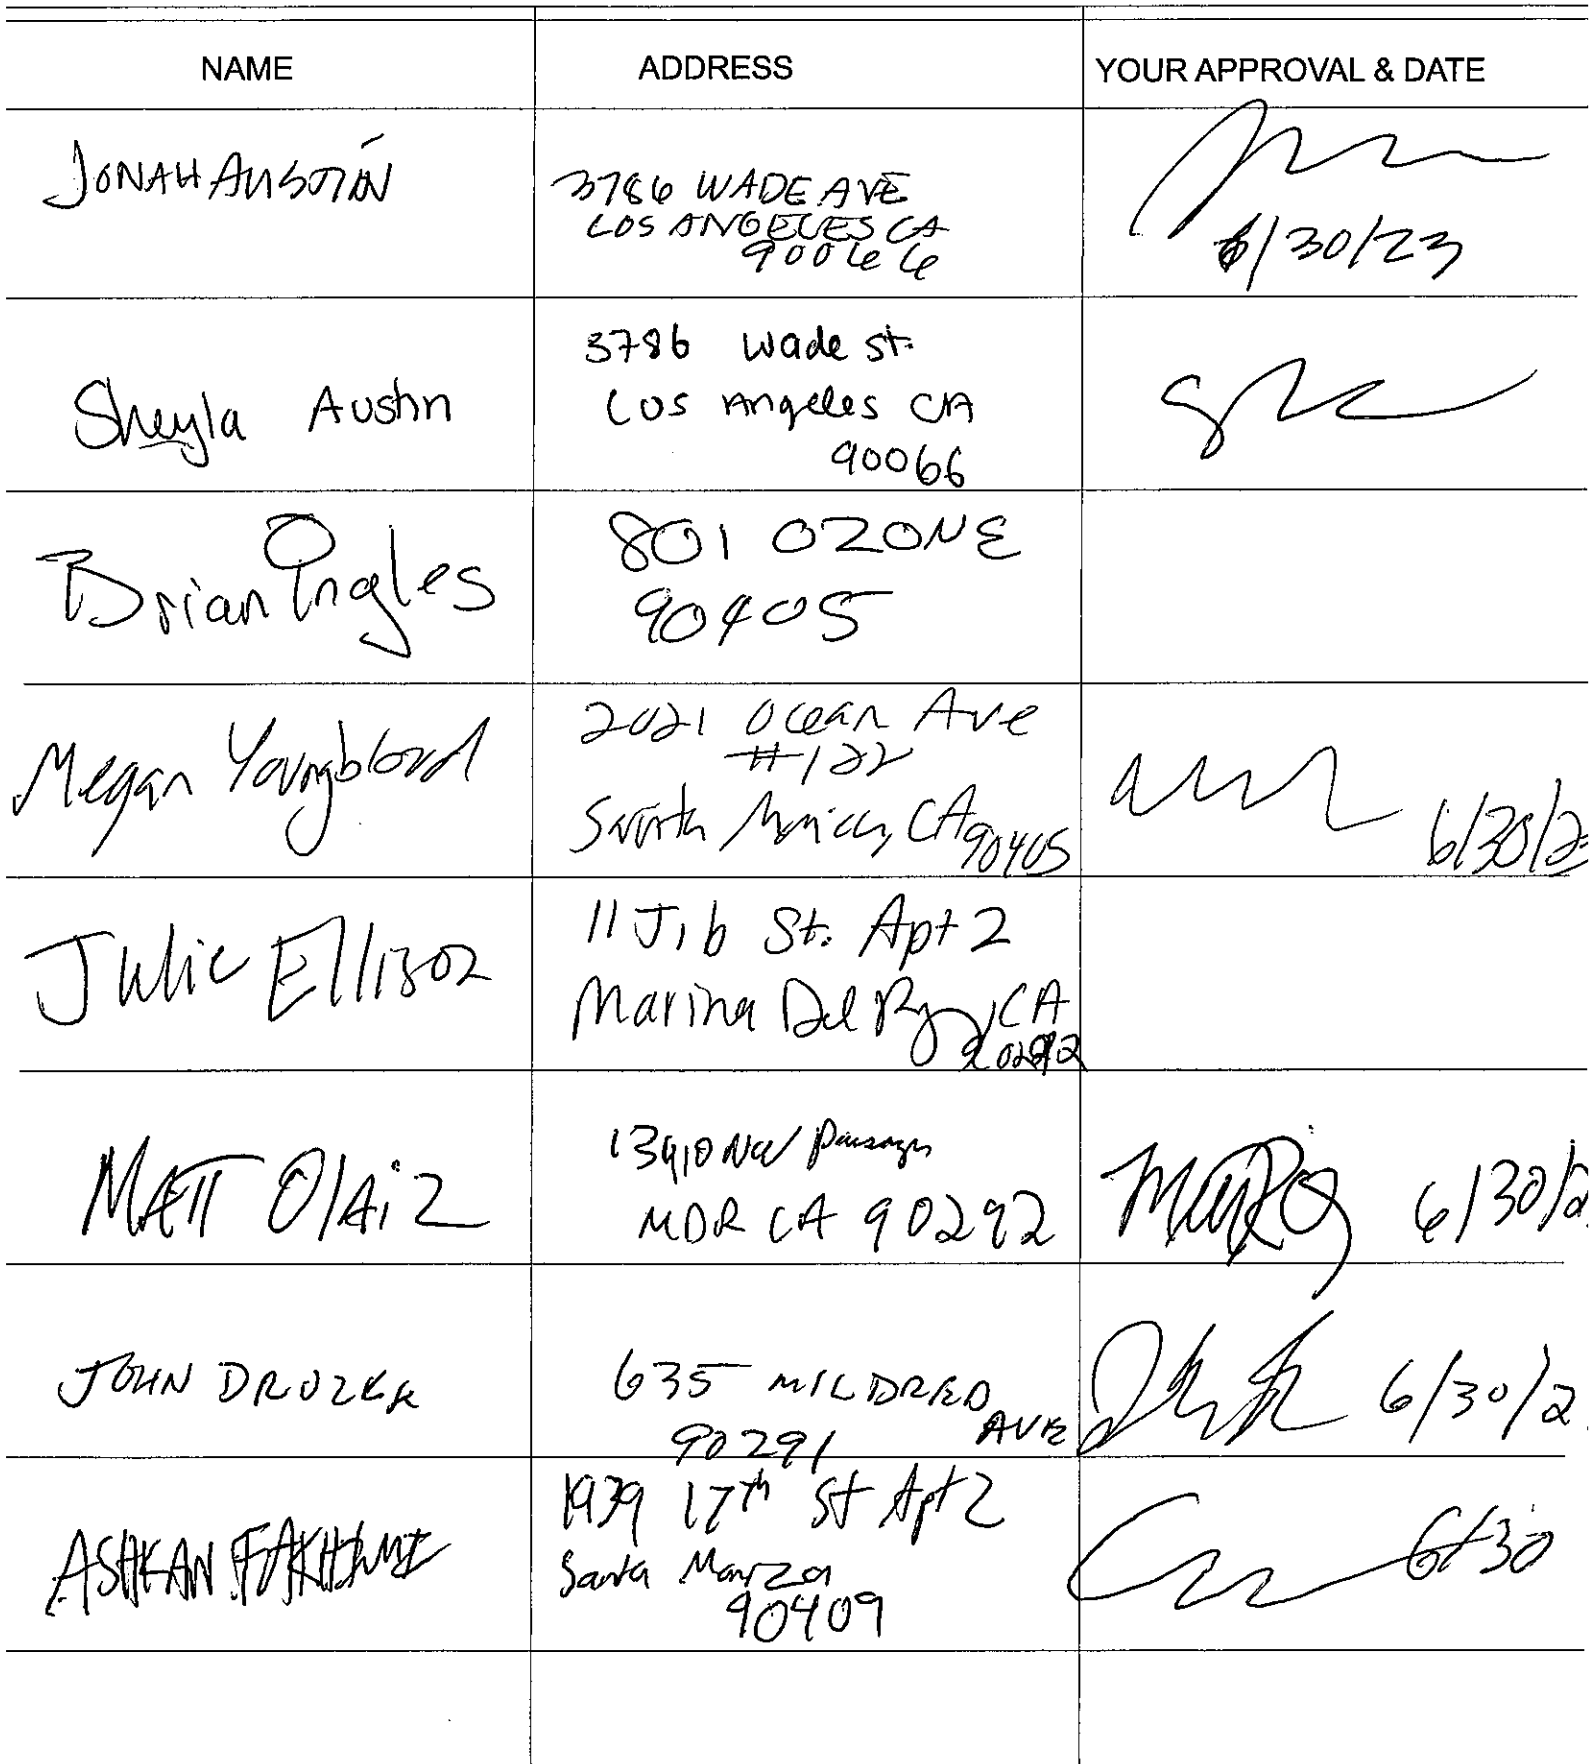 NAME ADDRESS YOUR APPROVAL & DATE
JONAH AUSTIN
3786 WADE AVE
LOS ANGELES CA
90066
6/30/23
Sheyla Austin
3786 Wade st.
Los Angeles CA
90066
Brian Ingles
801 OZONE
90405
Megan Youngblood
2021 Ocean Ave
#122
Santa Monica, CA 90405
6/30/23
Julie Ellison
11 Jib St. Apt 2
Marina Del Rey, CA
90292
MATT OlAiz
13910 NW Passage
MDR CA 90292
6/30/2
JOHN DROZKA
635 MILDRED
AVE
90291
6/30/2
ASHKAN
1939 17th St Apt 2
Santa
90409
6/30